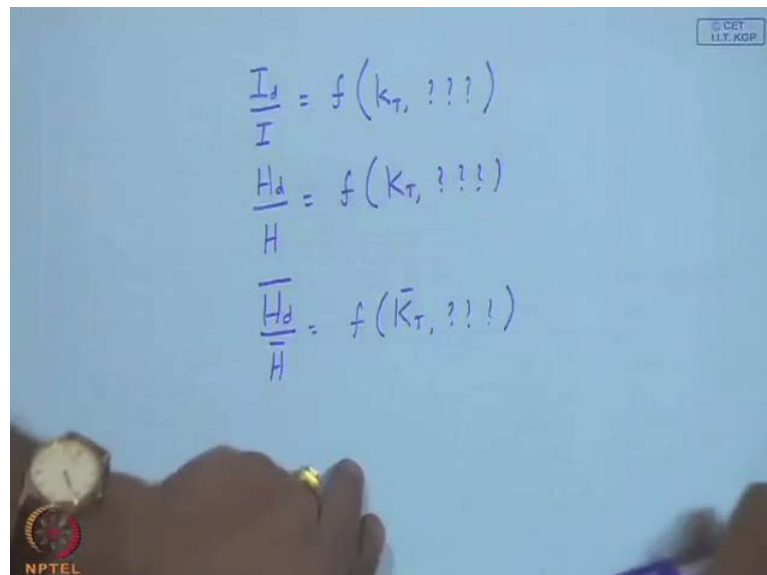 © CET
I.I.T. KGP
I_d/I = f(k_T, ???)
H_d/H = f(K_T, ???)
H̄_d/H̄ = f(K̄_T, ???)
NPTEL